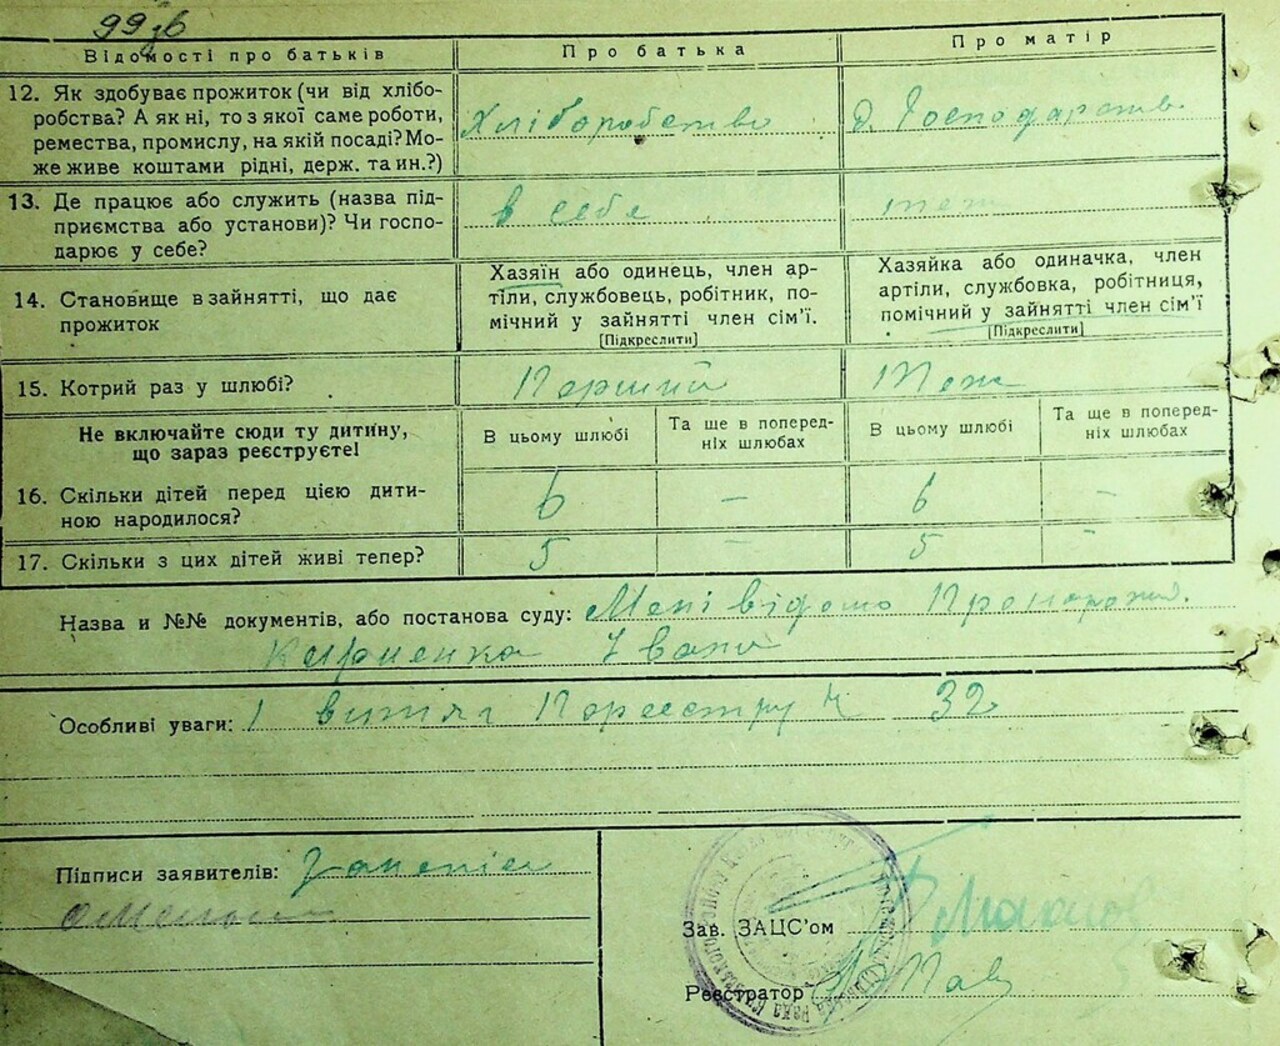 99 зв
Відомості про батьків Про батька Про матір
12. Як здобуває прожиток (чи від хлібо-
робства? А як ні, то з якої саме роботи,
ремества, промислу, на якій посаді? Мо-
же живе коштами рідні, держ. та ин.?)
Хліборобство
д. Господарств.
13. Де працює або служить (назва під-
приємства або установи)? Чи госпо-
дарює у себе?
в себе
теж
14. Становище в зайнятті, що дає
прожиток
Хазяїн або одинець, член ар-
тіли, службовець, робітник, по-
мічний у зайнятті член сім'ї.
[Підкреслити]
Хазяйка або одиначка, член
артіли, службовка, робітниця,
помічний у зайнятті член сім'ї
[Підкреслити]
15. Котрий раз у шлюбі?
Перший
Теж
Не включайте сюди ту дитину,
що зараз реєструєте!
В цьому шлюбі
Та ще в поперед-
ніх шлюбах
В цьому шлюбі
Та ще в поперед-
ніх шлюбах
16. Скільки дітей перед цією дити-
ною народилося?
6 — 6 —
17. Скільки з цих дітей живі тепер?
5 — 5 —
Назва и №№ документів, або постанова суду: Мені відомо
Івана
Особливі уваги: 1 витяг 32
Підписи заявителів:
Зав. ЗАЦС'ом
Реєстратор